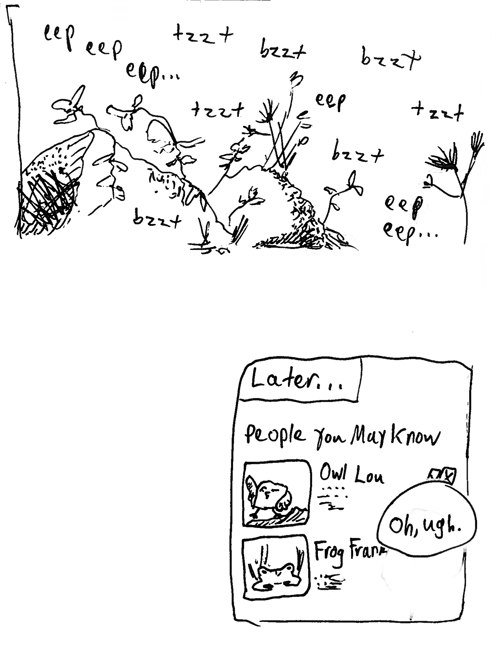 eep
eep
eep...
tzzt
bzzt
bzzt
tzzt
eep
tzzt
bzzt
bzzt
eep
eep...
Later...
People You May Know
Owl Lou
Oh, ugh.
Frog Frank